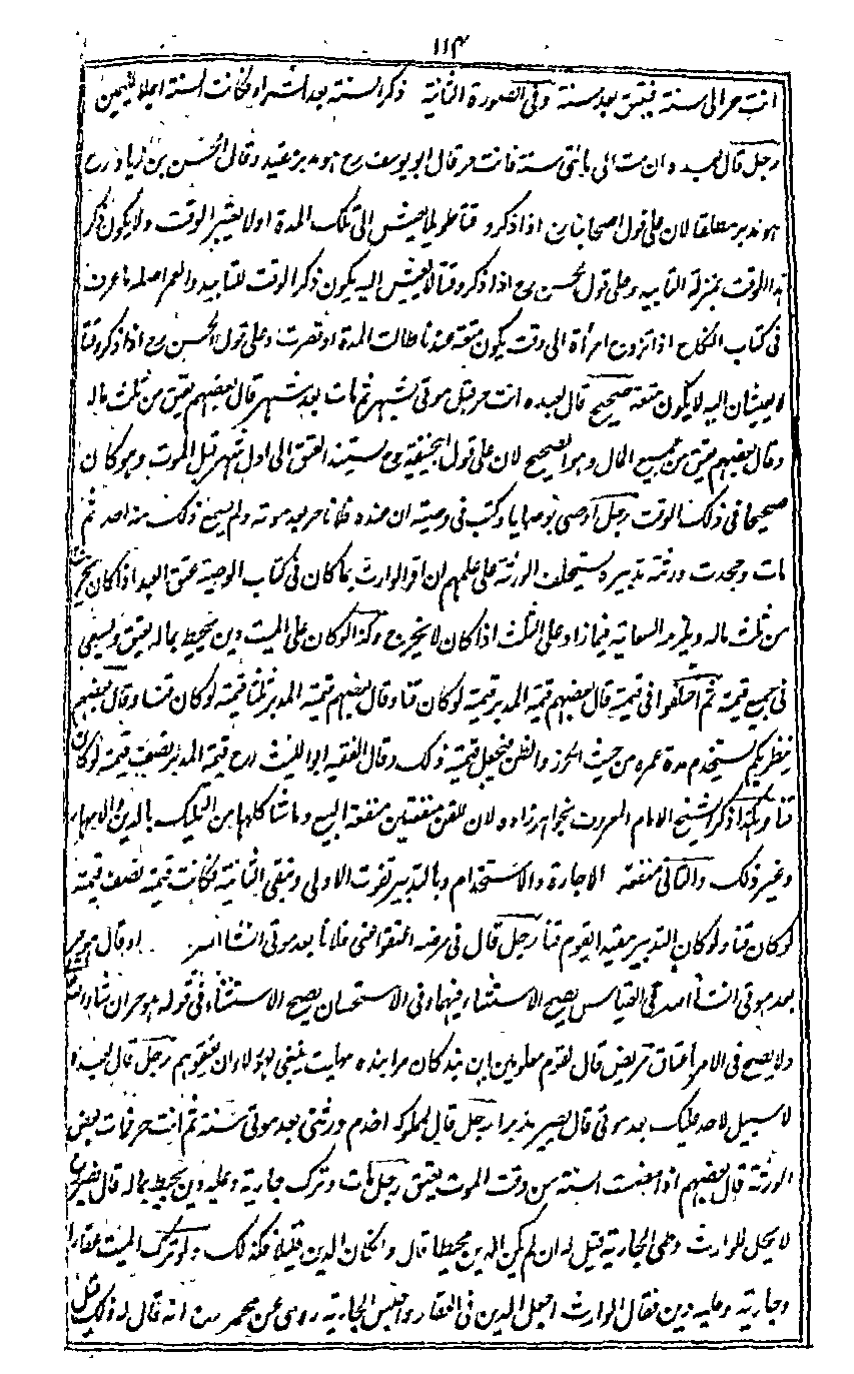 ١١٤
انت حر الى سنة فيعتق بعد سنة وفى الصورة الثانية ذكر السنة بعد الشراء فكانت السنة اجلا لليمين
رجل قال لعبده ان مت الى مائتى سنة فانت حر قال ابو يوسف رح هو مدبر مقيد وقال الحسن بن زياد رح
هو مدبر مطلقا لان على قول اصحابنا اذا ذكر وقتا طويلا يعيش الى تلك المدة اولا يعتبر الوقت ولا يكون ذكر
هذا الوقت بمنزلة التابيد وعلى قول الحسن رح اذا ذكر وقتا لا يعيش اليه يكون ذكر الوقت للتابيد والعمر اصله ما عرف
فى كتاب النكاح اذا تزوج امرأة الى وقت يكون متعة عندنا طالت المدة او قصرت وعلى قول الحسن رح اذا ذكر وقتا
لا يعيشان اليه لا يكون متعة صحيح قال لعبده انت حر قبل موتى بشهر ثم مات بعد شهر قال بعضهم يعتق من ثلث ماله
وقال بعضهم يعتق من جميع المال وهو الصحيح لان على قول ابى حنيفة رح يستند العتق الى اول شهر قبل الموت وهو كان
صحيحا فى ذلك الوقت رجل اوصى بوصايا وكتب فى وصيته ان عبده فلانا حر بعد موته ولم يسمع ذلك منه احد ثم
مات وجحدت ورثته تدبيره يستحلف الورثة على علمهم ان اقر الوارث بما كان فى كتاب الوصية عتق العبد اذا كان يخرج
من ثلث ماله ويلزمه السعاية فيما زاد على الثلث اذا كان لا يخرج وكذا لو كان على الميت دين يحيط بماله يعتق ويسعى
فى جميع قيمته ثم اختلفوا فى قيمته قال بعضهم قيمة المدبر قيمته لو كان قنا وقال بعضهم قيمة المدبر ثلثا قيمته لو كان قنا وقال بعضهم
ينظر بكم يستخدم مدة عمره من حيث الحزر والظن فيجعل قيمته ذلك وقال الفقيه ابو الليث رح قيمة المدبر نصف قيمته لو كان
قنا وهكذا ذكر الشيخ الامام المعروف بخواهر زاده لان للقن منفعتين منفعة البيع وما شاكلها من التمليك بالدين والامهار
وغير ذلك والثانى منفعة الاجارة والاستخدام وبالتدبير تفوت الاولى وتبقى الثانية فكانت قيمته نصف قيمته
لو كان قنا ولو كان التدبير مقيدا يقوم قنا رجل قال فى مرضه اعتقوا عنى فلانا بعد موتى انشاء الله او قال هو حر
بعد موتى انشاء الله فى القياس يصح الاستثناء فيهما وفى الاستحسان يصح الاستثناء فى قوله هو حر ان شاء الله
ولا يصح فى الامر باعتاق مريض قال لقوم معلومين كان مر ابنده ينبغى لهؤلاء ان يعتقوهم رجل قال لعبده
لا سبيل لاحد عليك بعد موتى قال يصير مدبرا رجل قال لمملوكه اخدم ورثتى بعد موتى سنة ثم انت حر فمات بعض
الورثة قال بعضهم اذا مضت السنة من وقت الموت يعتق رجل مات وترك جارية وعليه دين يحيط بماله قال
لا يحل للوارث وطى الجارية قيل له ان لم يكن الدين محيطا قال وان كان الدين قليلا فكذلك ولو ترك الميت عقارا
وجارية وعليه دين فقال الوارث اجعل الدين فى العقار واحبس الجارية روى عن محمد رح انه قال له ذلك قيل